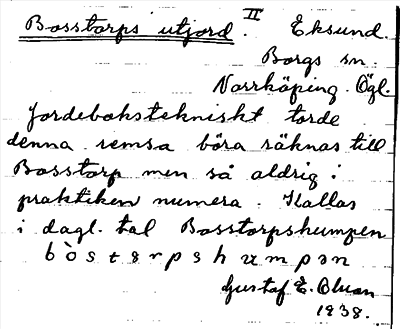 Bosstorps utjord. II Eksund.
Borgs sn.
Norrköping. Ögl.
Jordebokstekniskt torde
denna remsa böra räknas till
Bosstorp men så aldrig i
praktiken numera. Kallas
i dagl. tal Bosstorpshumpen
Gustaf E.
1938.